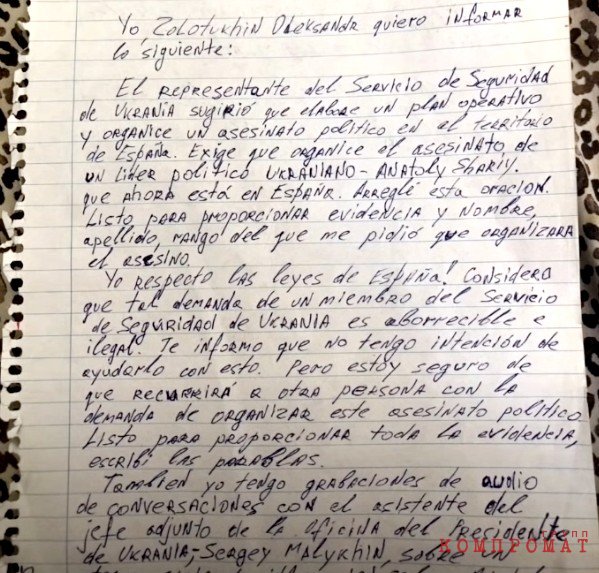 Yo Zolotukhin Oleksandr quiero informar
lo siguiente:
El representante del Servicio de Seguridad
de Ukrania sugirió que elabore un plan operativo
y organice un asesinato político en el territorio
de España. Exige que organice el asesinato de
un líder político Ukraniano - Anatoly Shariy.
que ahora está en España. Arreglé esta oracion.
Listo para proporcionar evidencia y nombre,
apellido, rango del que me pidió que organizara
el asesino.
Yo respecto las leyes de España! Considero
que tal demanda de un miembro del Servicio
de Seguridad de Ukrania es aborrecible e
ilegal. Te informo que no tengo intención de
ayudarlo con esto. Pero estoy seguro de
que recurrirá a otra persona con la
demanda de organizar este asesinato político
Listo para proporcionar toda la evidencia,
escribí las parablas.
Tambien yo tengo grabeciones de audio
de conversaciones con el asistente del
jefe adjunto de la oficina del Precidente
de Ukrania, Sergey Malykhin, sobre un
КОМПРОМАТ